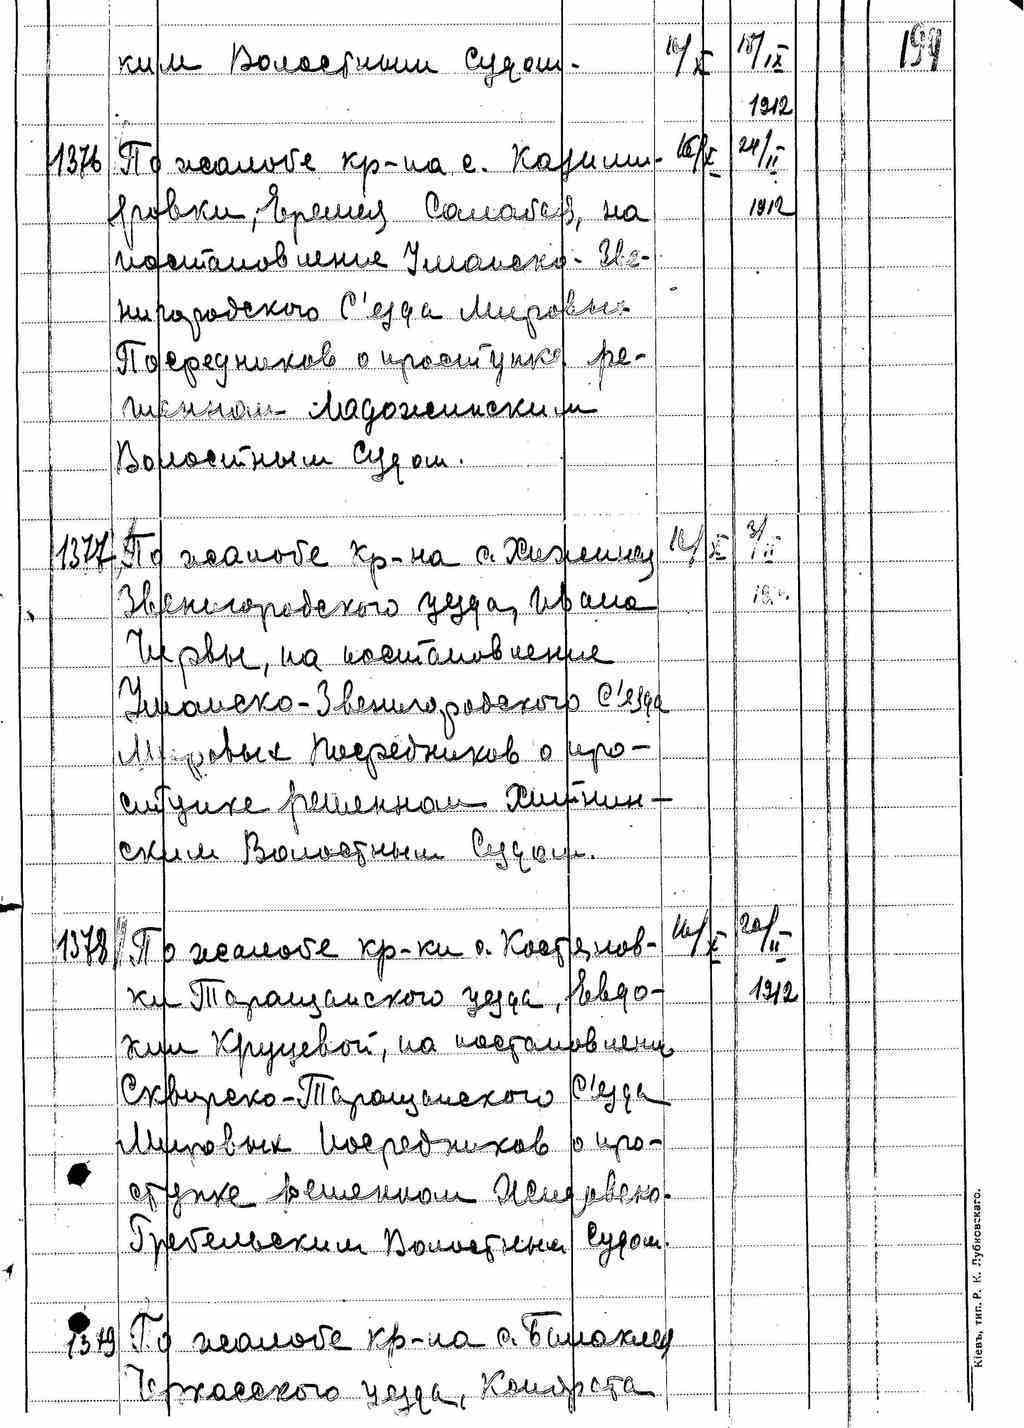 ким Волостным Судом. 16/X 18/IX 199
1912
1376 По жалобе кр-на с. Казими- 16/X 24/II
ровки, Еремея, на 1912
постановление Уманско-Зве-
нигородского С'езда Мировых
Посредников о проступке ре-
шенном Ладожинским
Волостным Судом.
1377 По жалобе кр-на с. Хижинец 16/X 3/III
Звенигородского уезда, Ивана
Червы, на постановление
Уманско-Звенигородского С'езда
Мировых Посредников о про-
ступке решенном
ским Волостным Судом.
1378 По жалобе кр-ки с. Костянов- 16/X 20/II
ки Таращанского уезда, Евдо- 1912
кии Круцевой, на постановление
Сквирско-Таращанского С'езда
Мировых Посредников о про-
ступке решенном
Гребельским Волостным Судом.
1379 По жалобе кр-на с. Балаклеи
Черкасского уезда, Кондрата
Кіевъ, тип. Р. К. Лубковскаго.